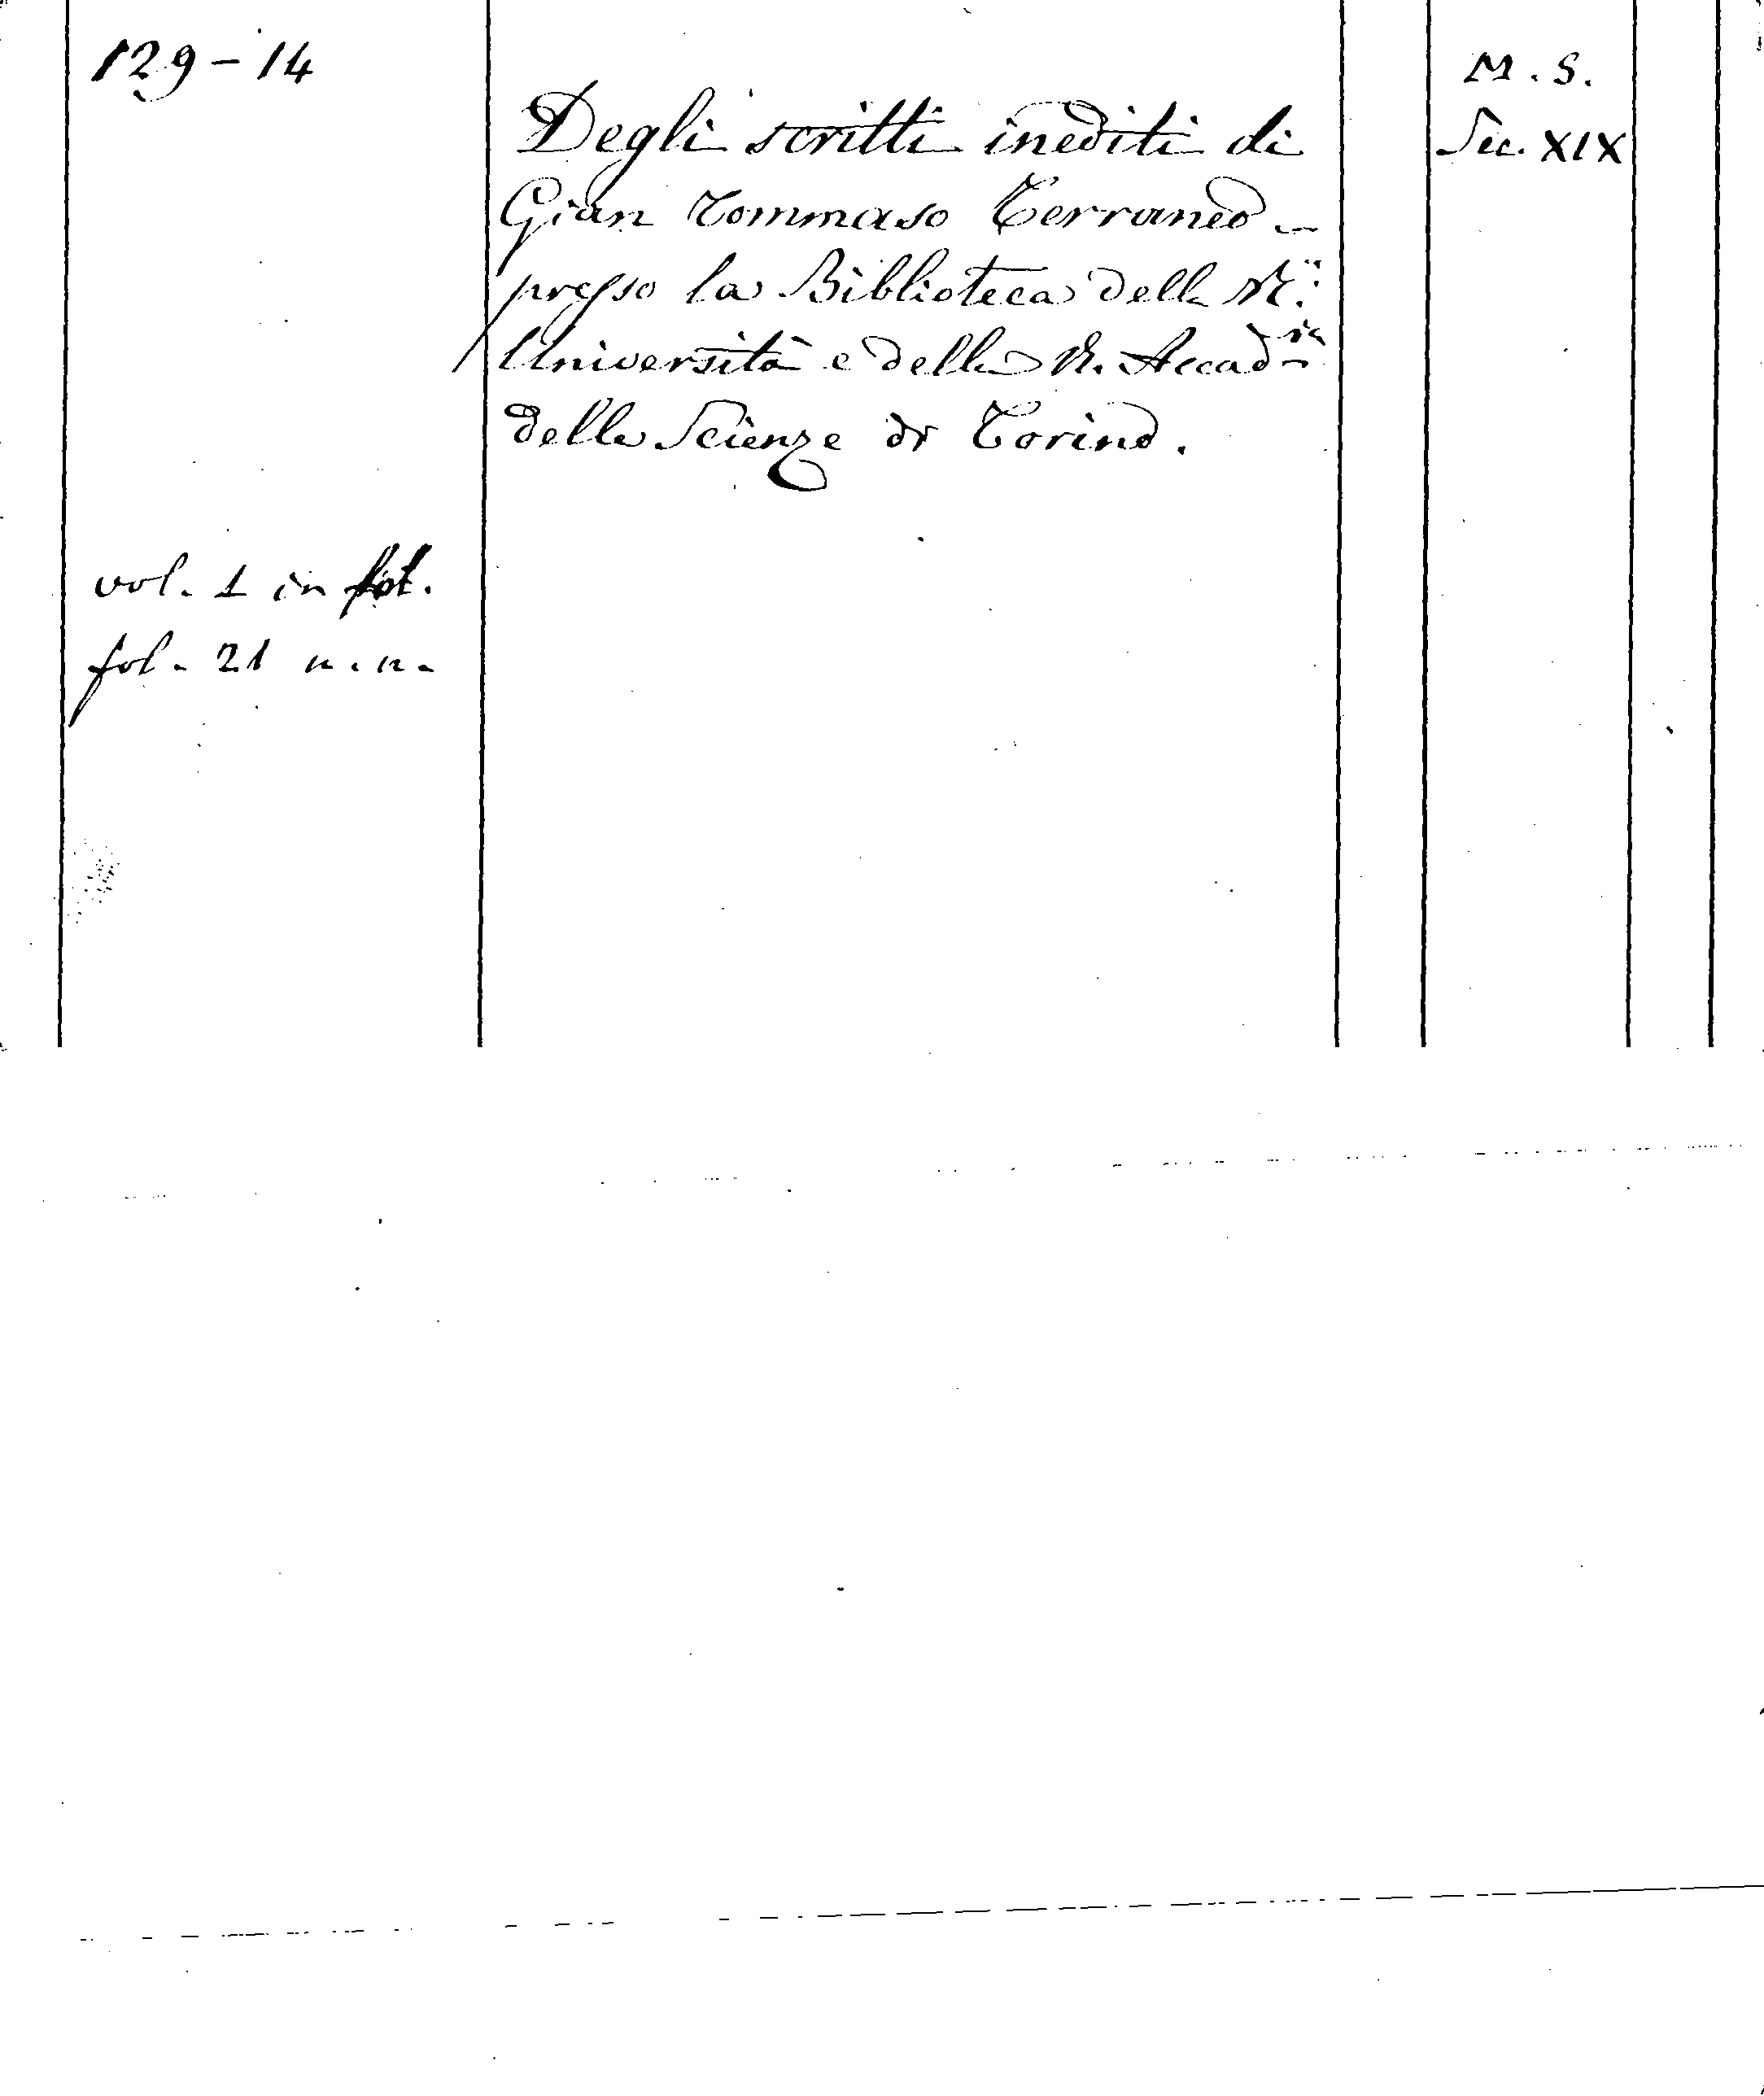 129-14
M. S.
Sec. XIX
Degli scritti inediti di
Gian Tommaso Terraneo -
presso la Biblioteca della R.
Università e della R. Accad.ia
delle Scienze di Torino.
vol. 1 in fol.
fol. 21 n. n.